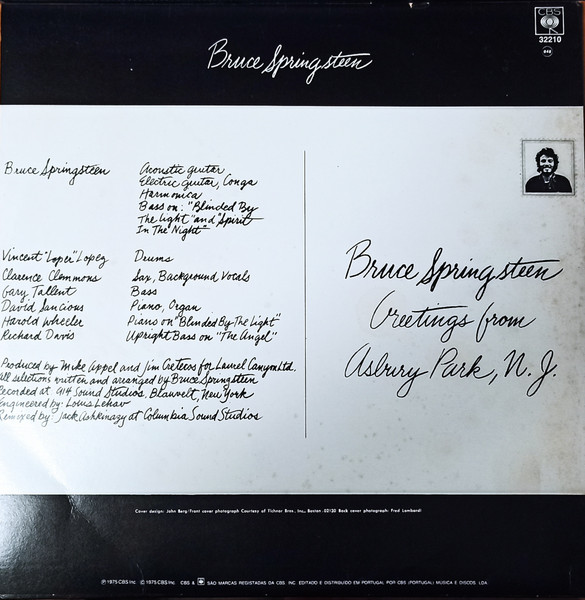 CBS
32210
Bruce Springsteen
Bruce Springsteen Acoustic guitar
Electric guitar, Conga
Harmonica
Bass on: "Blinded By
The Light" and "Spirit
In The Night"
Vincent "Loper" Lopez Drums
Clarence Clemmons Sax, Background Vocals
Gary Tallent Bass
David Sancious Piano, Organ
Harold Wheeler Piano on "Blinded By The Light"
Richard Davis Upright Bass on "The Angel"
Produced by Mike Appel and Jim Cretecos for Laurel Canyon Ltd.
All selections written and arranged by Bruce Springsteen
Recorded at 914 Sound Studios, Blauvelt, New York
Engineered by: Louis Lahav
Remixed by: Jack Ashkinazy at Columbia Sound Studios
Bruce Springsteen
Greetings from
Asbury Park, N.J.
Cover design: John Berg/Front cover photograph Courtesy of Tichnor Bros., Inc., Boston 02120 Back cover photograph: Fred Lombardi
℗ 1975 CBS Inc. © 1975 CBS Inc. CBS & SÃO MARCAS REGISTADAS DA CBS. INC. EDITADO E DISTRIBUIDO EM PORTUGAL POR CBS (PORTUGAL) MUSICA E DISCOS, LDA.